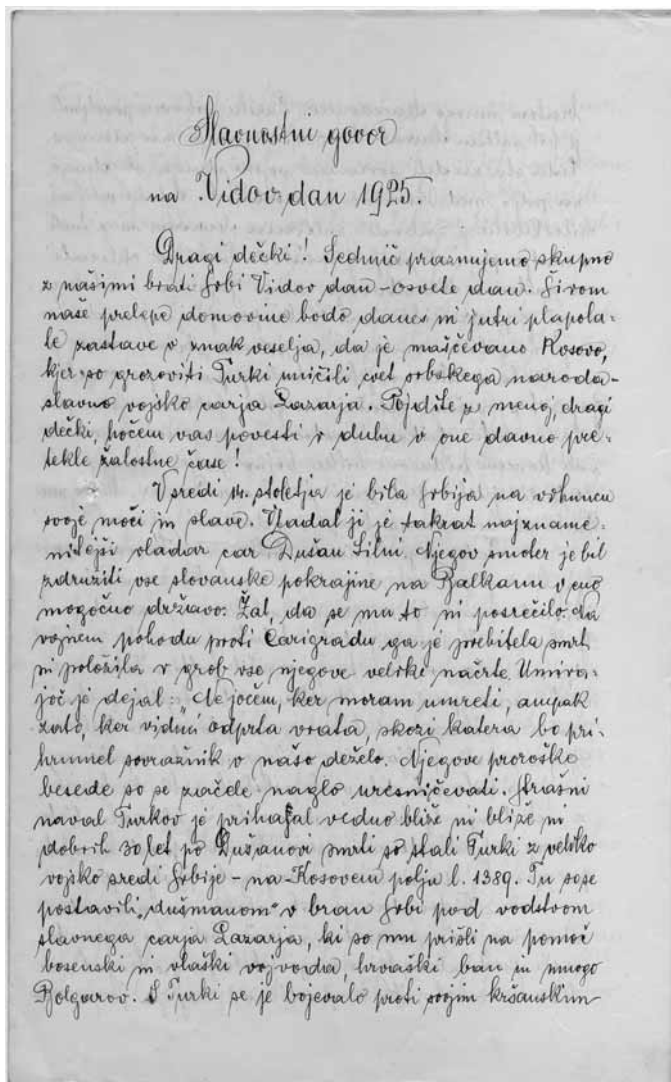 Slavnostni govor
na Vidov dan 1925.
Dragi dečki! Sedmič praznujemo skupno
z našimi brati Srbi Vidov dan - osvete dan. Širom
naše prelepe domovine bodo danes in jutri plapola-
le zastave v znak veselja, da je maščevano Kosovo,
kjer so grozoviti Turki uničili cvet srbskega naroda -
slavno vojsko carja Lazarja. Pojdite z menoj, dragi
dečki, hočem vas povesti v duhu v one davno pre-
tekle žalostne čase!
Vsredi 14. stoletja je bila Srbija na vrhuncu
svoje moči in slave. Vladal ji je takrat najzname-
nitejši vladar car Dušan Silni. Njegov smoter je bil
združiti vse slovanske pokrajine na Balkanu v eno
mogočno državo. Žal, da se mu to ni posrečilo. Na
vojnem pohodu proti Carigradu ga je prehitela smrt
in položila v grob vse njegove velike načrte. Umira-
joč je dejal: „Ne jočem, ker moram umreti, ampak
zato, ker vidim odprta vrata, skozi katera bo pri-
hrumel sovražnik v našo deželo. Njegove preroške
besede so se začele naglo uresničevati. Strašni
naval Turkov je prihajal vedno bliže in bliže in
dobrih 30 let po Dušanovi smrti so stali Turki z veliko
vojsko sredi Srbije - na Kosovem polju l. 1389. Tu so se
postavili „dušmanom" v bran Srbi pod vodstvom
slavnega carja Lazarja, ki so mu prišli na pomoč
bosenski in vlaški vojvoda, hrvaški ban in mnogo
Bolgarov. S Turki se je bojevalo proti svojim kršanskim